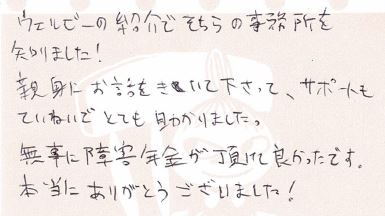 ウェルビーの紹介でそちらの事務所を
知りました!
親身にお話をきいて下さって、サポートも
ていねいでとても助かりました。
無事に障害年金が頂けて良かったです。
本当にありがとうございました!